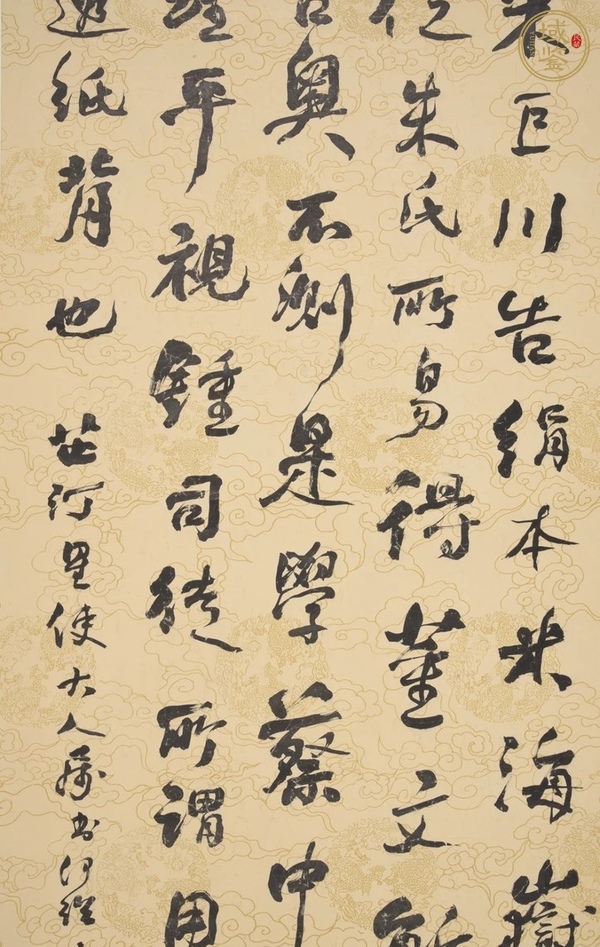 朱巨川告絹本米海嶽
從朱氏所易得董文敏
古奧不測是學蔡中
經平視鍾司徒所謂用
透紙背也 芷汀星使大人屬書何紹